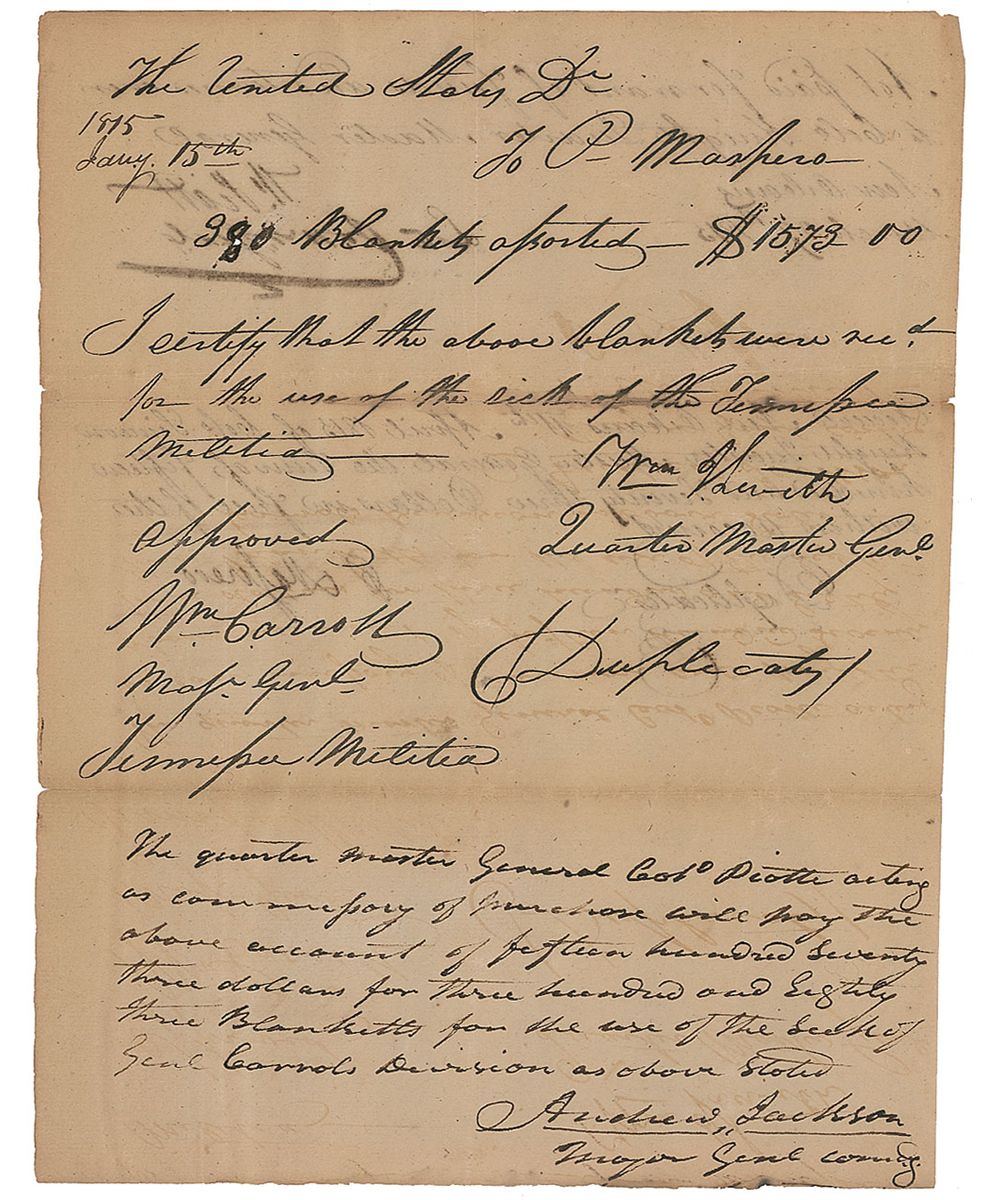 The United States Dr
1815
Jany. 15th To P. Maspero
380 Blankets assorted — $1573 00
I certify that the above blankets were recd.
for the use of the sick of the Tennessee
Militia
Wm
Quarter Master Genl.
approved
Wm Carroll
Majr Genl.
(Duplicate)
Tennessee Militia
The quarter master General Colo Piatte acting
as commessary of purchase will pay the
above account of fifteen hundred Seventy
three dollars for three hundred and Eightey
three Blanketts for the use of the Seek of
Genl Carrols Division as above Stated
Andrew, Jackson
Major Genl comdg.